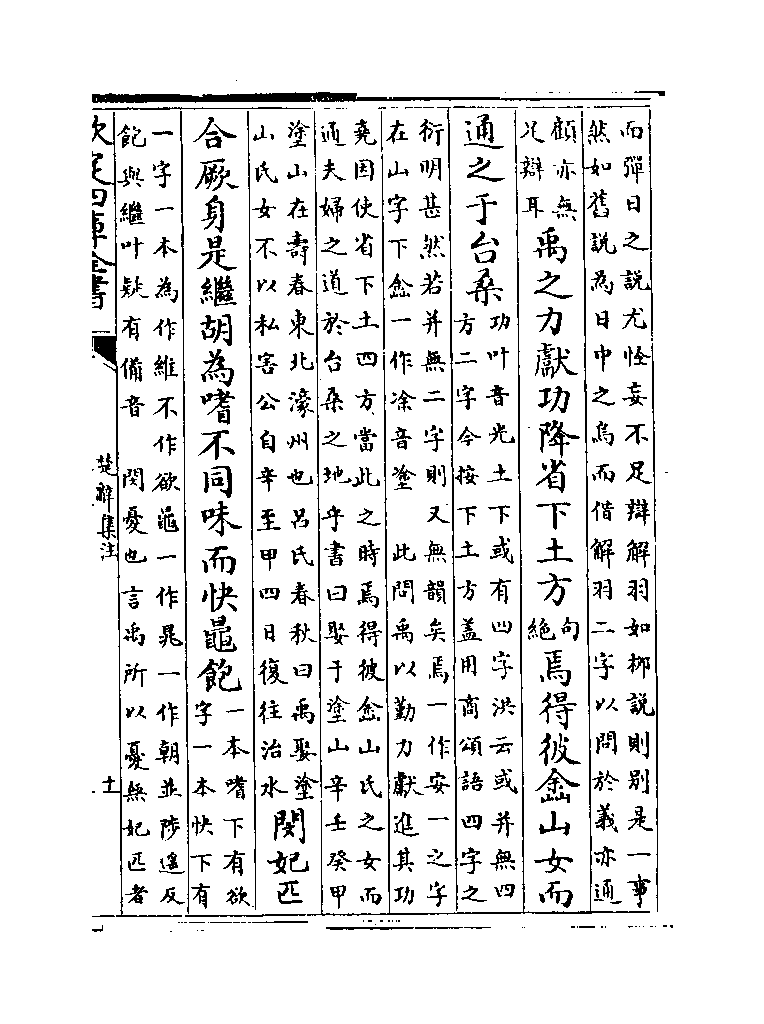 而彈日之説尤怪妄不足辯解羽如栁説則别是一事
然如舊説為日中之烏而借解羽二字以問於義亦通
顧亦無
况辯耳
禹之力獻功降省下土方
句
絶
焉得彼嵞山女而
通之于台桑
功叶音光土下或有四字洪云或并無四
方二字今按下土方蓋用商頌語四字之
衍明甚然若并無二字則又無韻矣焉一作安一之字
在山字下嵞一作凃音塗 此問禹以勤力獻進其功
堯因使省下土四方當此之時焉得彼嵞山氏之女而
通夫婦之道於台桑之地乎書曰娶于塗山辛壬癸甲
塗山在壽春東北濠州也呂氏春秋曰禹娶塗
山氏女不以私害公自辛至甲四日復往治水
閔妃匹
合厥身是繼胡為嗜不同味而快鼂飽
一本嗜下有欲
字一本快下有
一字一本為作維不作欲鼂一作晁一作朝並陟遙反
飽與繼叶疑有備音 閔憂也言禹所以憂無妃匹者
欽定四庫全書
楚辭集注
十